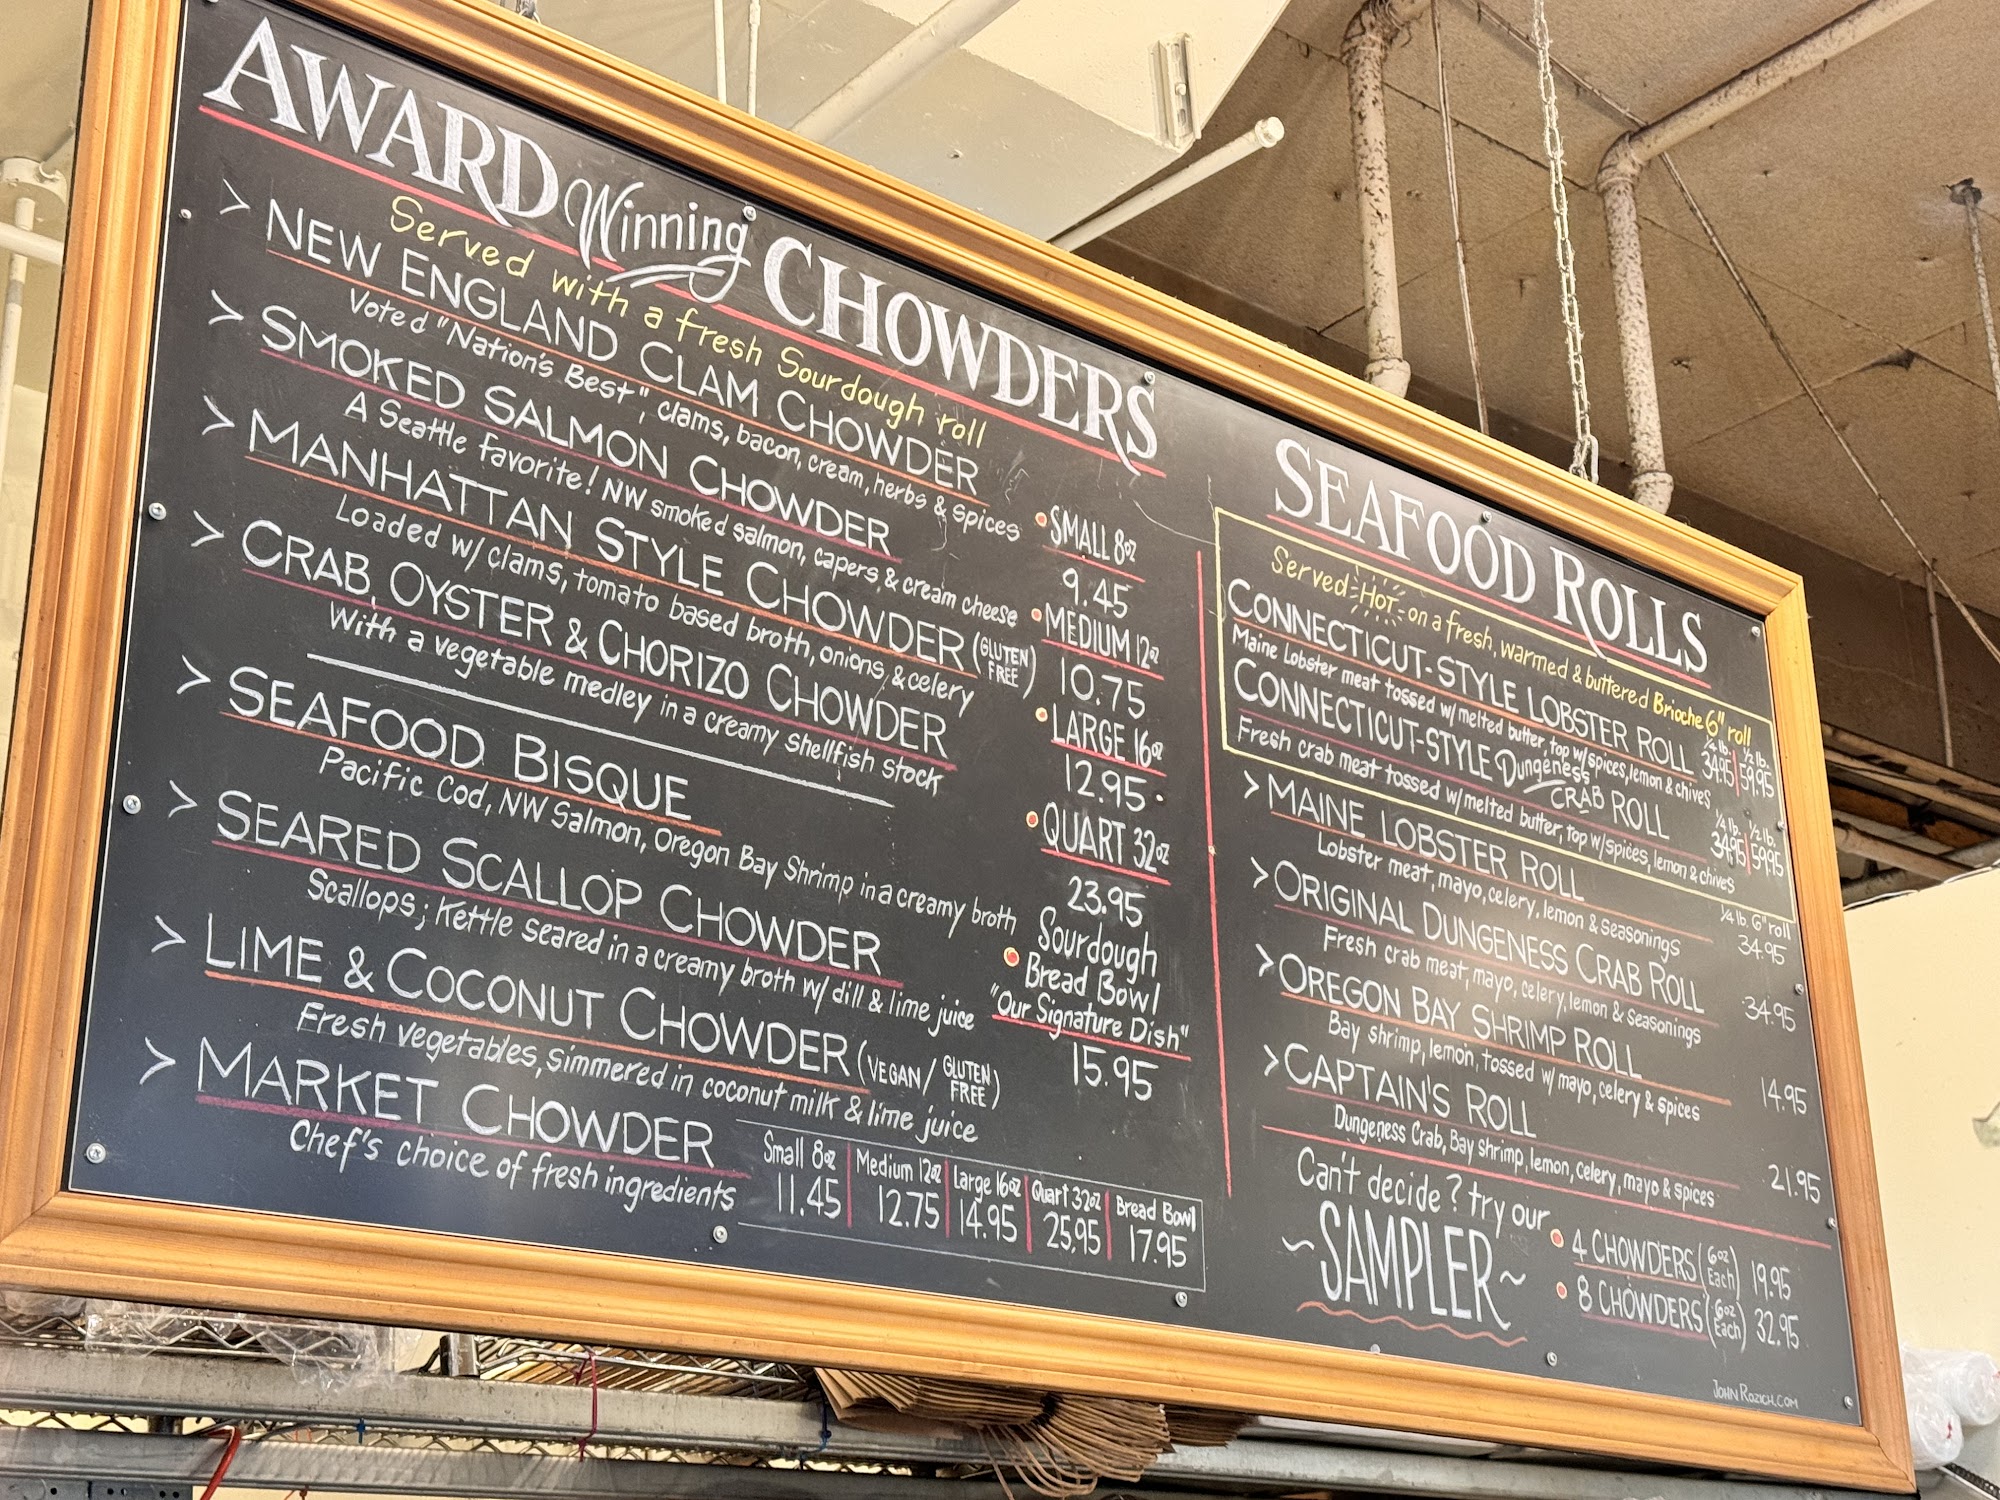 AWARD Winning CHOWDERS
Served with a fresh Sourdough roll
> NEW ENGLAND CLAM CHOWDER
Voted "Nation's Best", clams, bacon, cream, herbs & spices
> SMOKED SALMON CHOWDER
A Seattle favorite! NW smoked salmon, capers & cream cheese
> MANHATTAN STYLE CHOWDER (GLUTEN FREE)
Loaded w/ clams, tomato based broth, onions, & celery
> CRAB, OYSTER & CHORIZO CHOWDER
With a vegetable medley in a creamy shellfish stock
> SEAFOOD BISQUE
Pacific Cod, NW Salmon, Oregon Bay Shrimp in a creamy broth
> SEARED SCALLOP CHOWDER
Scallops; Kettle seared in a creamy broth w/ dill & lime juice
> LIME & COCONUT CHOWDER (VEGAN/ GLUTEN FREE)
Fresh vegetables, simmered in coconut milk & lime juice
> MARKET CHOWDER
Chef's choice of fresh ingredients
SMALL 8oz
9.45
MEDIUM 12oz
10.75
LARGE 16oz
12.95
QUART 32oz
23.95
Sourdough
Bread Bowl
"Our Signature Dish"
15.95
Small 8oz Medium 12oz Large 16oz Quart 32oz Bread Bowl
11.45 12.75 14.95 25.95 17.95
SEAFOOD ROLLS
Served HOT on a fresh, warmed & buttered Brioche 6" roll
CONNECTICUT-STYLE LOBSTER ROLL 1/4 lb. 34.95 1/2 lb. 59.95
Maine Lobster meat tossed w/ melted butter, top w/ spices, lemon & chives
CONNECTICUT-STYLE Dungeness CRAB ROLL 1/4 lb. 34.95 1/2 lb. 59.95
Fresh crab meat tossed w/ melted butter, top w/ spices, lemon & chives
> MAINE LOBSTER ROLL 1/4 lb. 6" roll 34.95
Lobster meat, mayo, celery, lemon & seasonings
> ORIGINAL DUNGENESS CRAB ROLL 34.95
Fresh crab meat, mayo, celery, lemon & seasonings
> OREGON BAY SHRIMP ROLL 14.95
Bay shrimp, lemon, tossed w/ mayo, celery & spices
> CAPTAIN'S ROLL 21.95
Dungeness Crab, Bay shrimp, lemon, celery, mayo & spices
Can't decide? try our
~SAMPLER~
4 CHOWDERS (6oz Each) 19.95
8 CHOWDERS (6oz Each) 32.95
JOHN ROZICH.COM